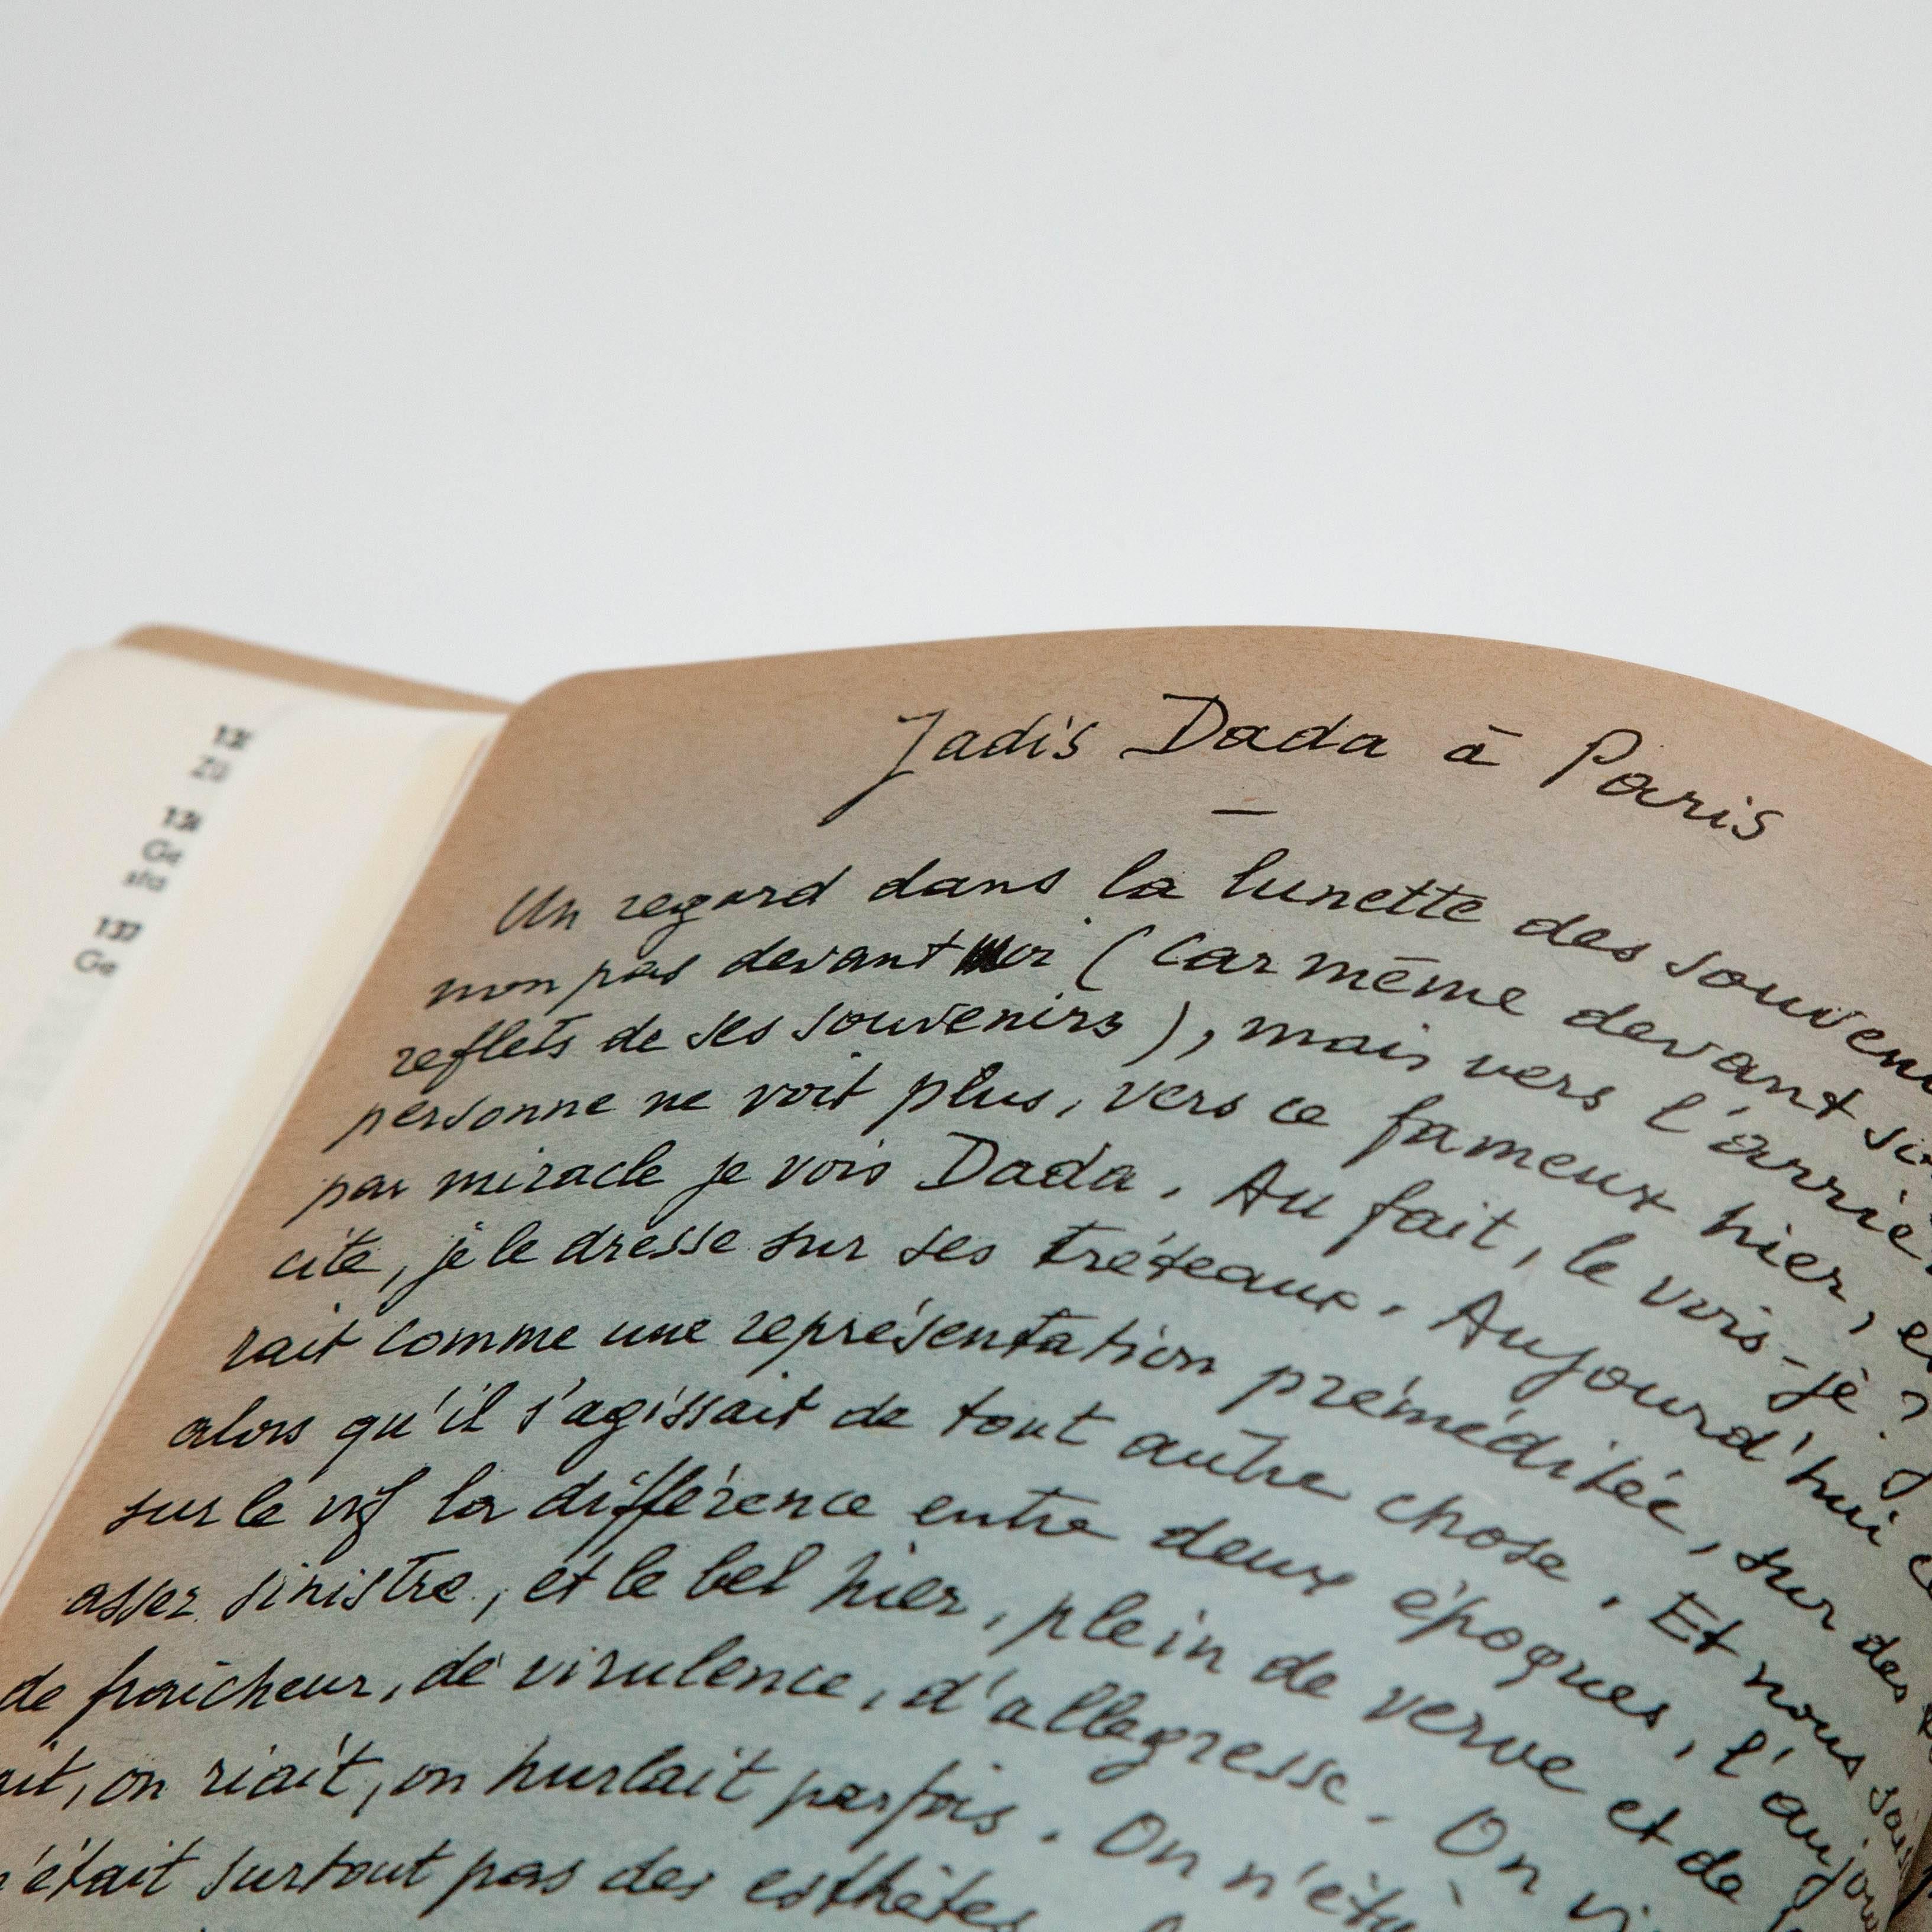 131
Zü
13
Ge
sta
137
Ge
Jadis Dada à Paris
Un regard dans la lunette des souveni
non pas devant moi (car même devant soi
reflets de ses souvenirs), mais vers l'arriè
personne ne voit plus, vers ce fameux hier, et
par miracle je vois Dada. Au fait, le vois-je?
cite, je le dresse sur ses tréteaux. Aujourd'hui
rait comme une représentation préméditée, sur des
alors qu'il s'agissait de tout autre chose. Et nous
sur le vif la différence entre deux époques, l'aujour
assez sinistre, et le bel hier, plein de verve et de
de fraîcheur, de virulence, d'allégresse. On vi
ait, on riait, on hurlait parfois. On n'éta
n'était surtout pas des esthètes